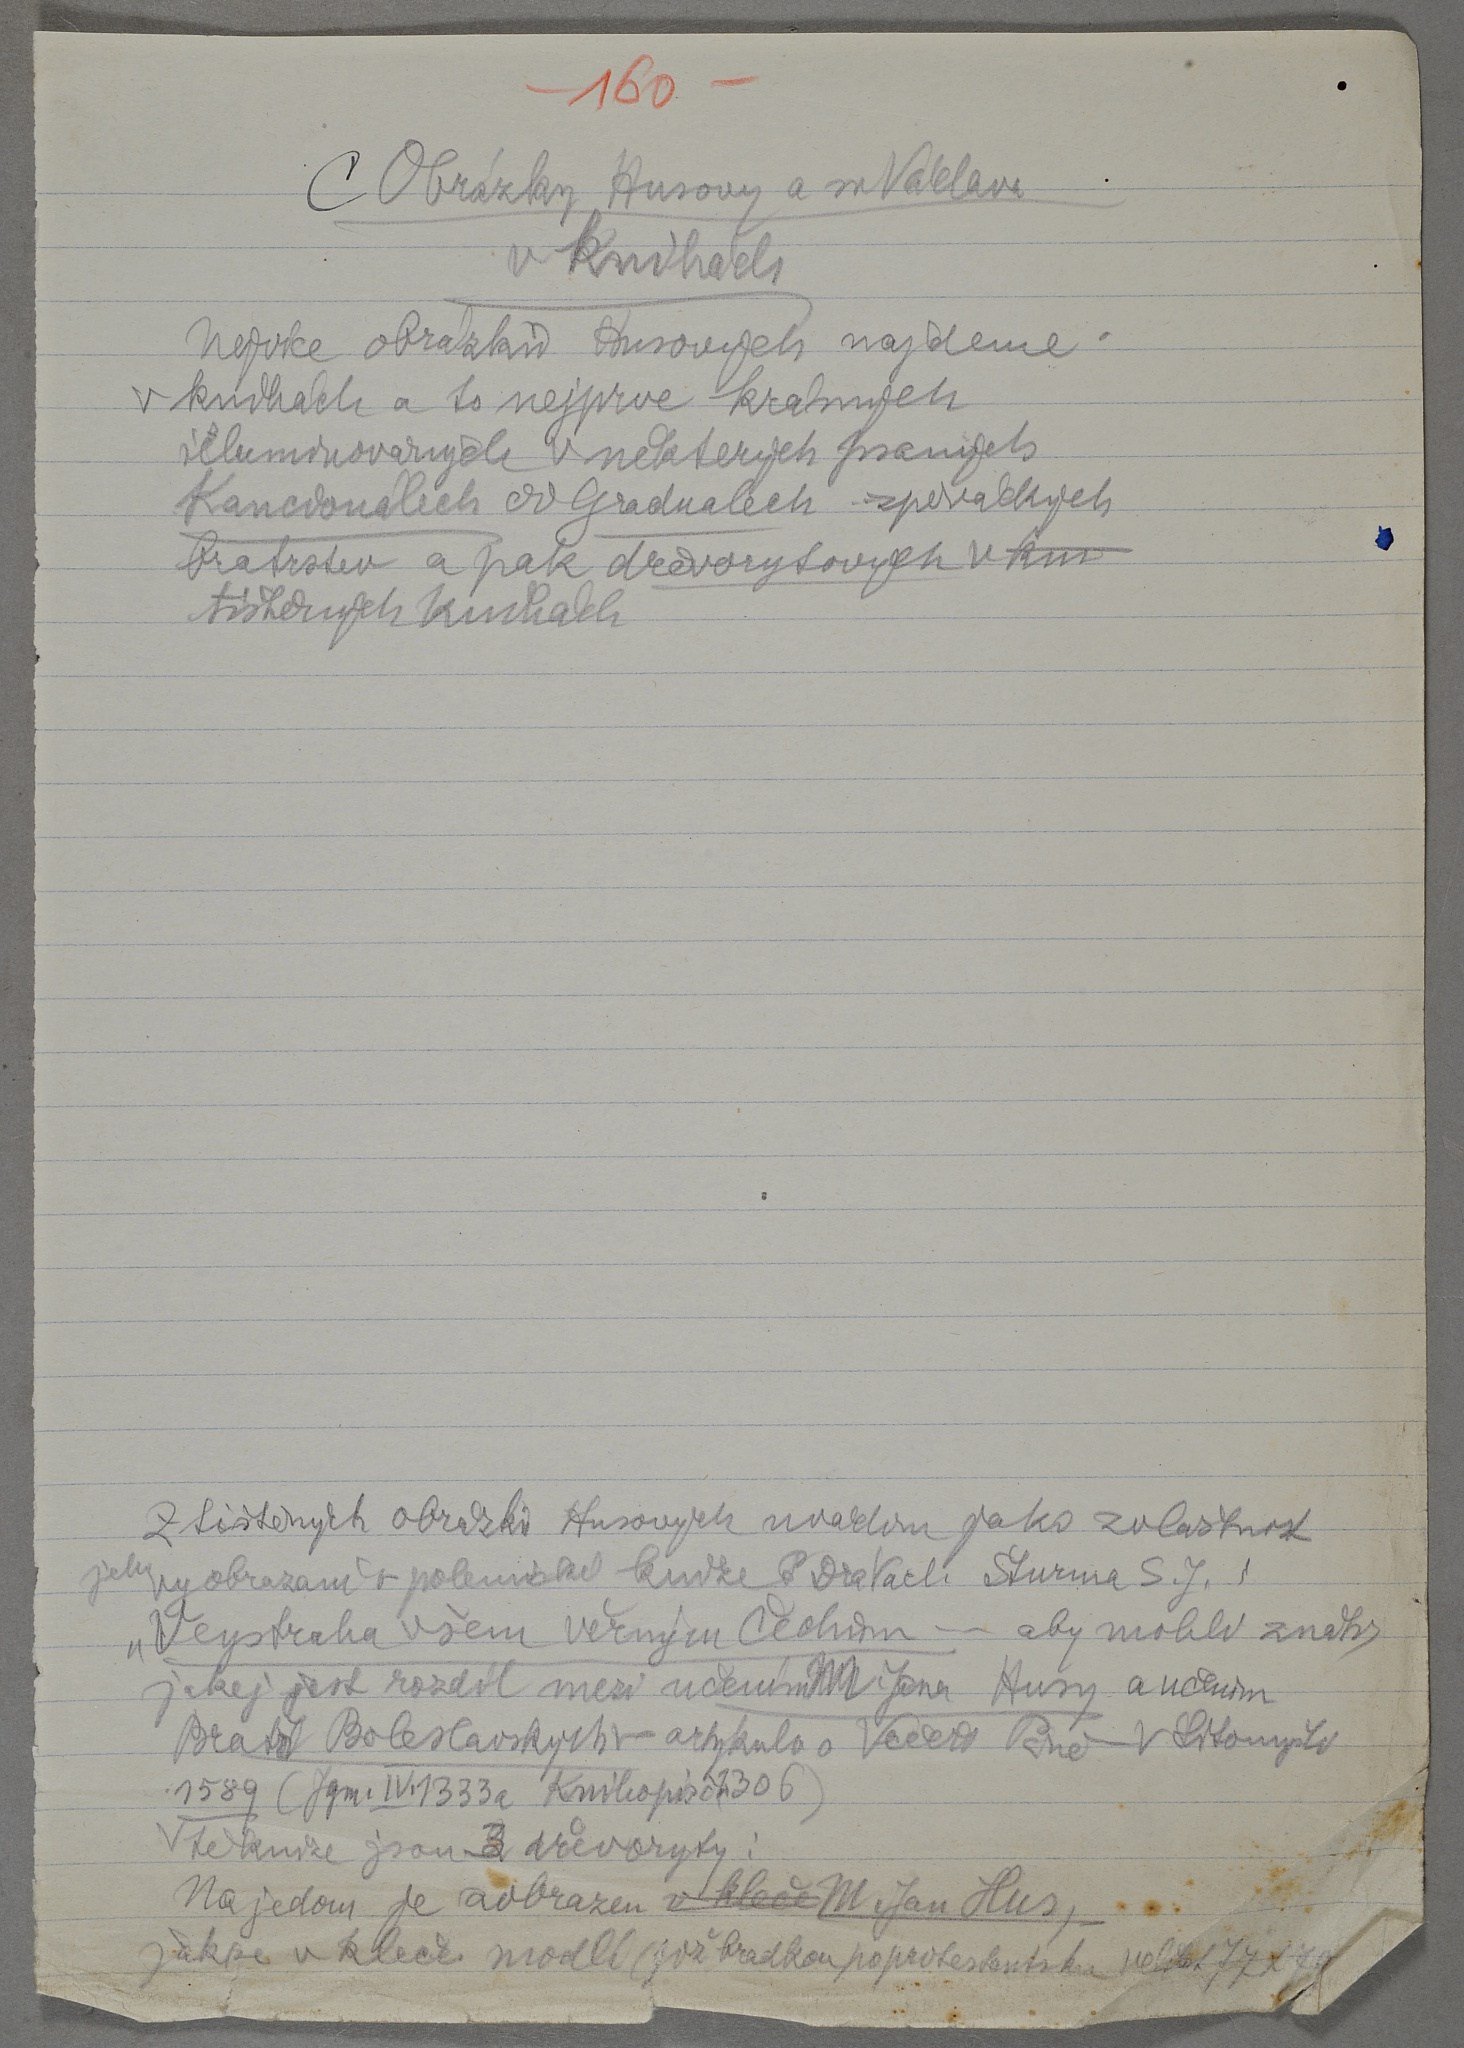 - 160 -
Obrázky Husovy a sv Václava
v knihách
Nejvíce obrázků Husových najdeme
v knihách a to nejprve krásných
illuminovaných v některých psaných
Kancionálech či Gradualech zpěváckých
bratrstev a pak dřevorytových v kni
tištěných knihách
Z tištěných obrázků Husových uvádím jako zvláštnost
jeho vyobrazení v polemické knize P Dra Václ. Šturma S.J. :
„Veystraha všem věrným Čechům — aby mohli znáti,
jakej jest rozdíl mezi učením M Jana Husy a učením
Bratří Boleslavských — artykulo o Večeři Páně — V Litomyšli
1589 (Jgm. IV. 1333a Knihopis č. 306)
V té knize jsou 3 dřevoryty :
Na jedom je zobrazen v kleče M. Jan Hus,
jak se v kleče modlí (již bradkou poprotestantsku